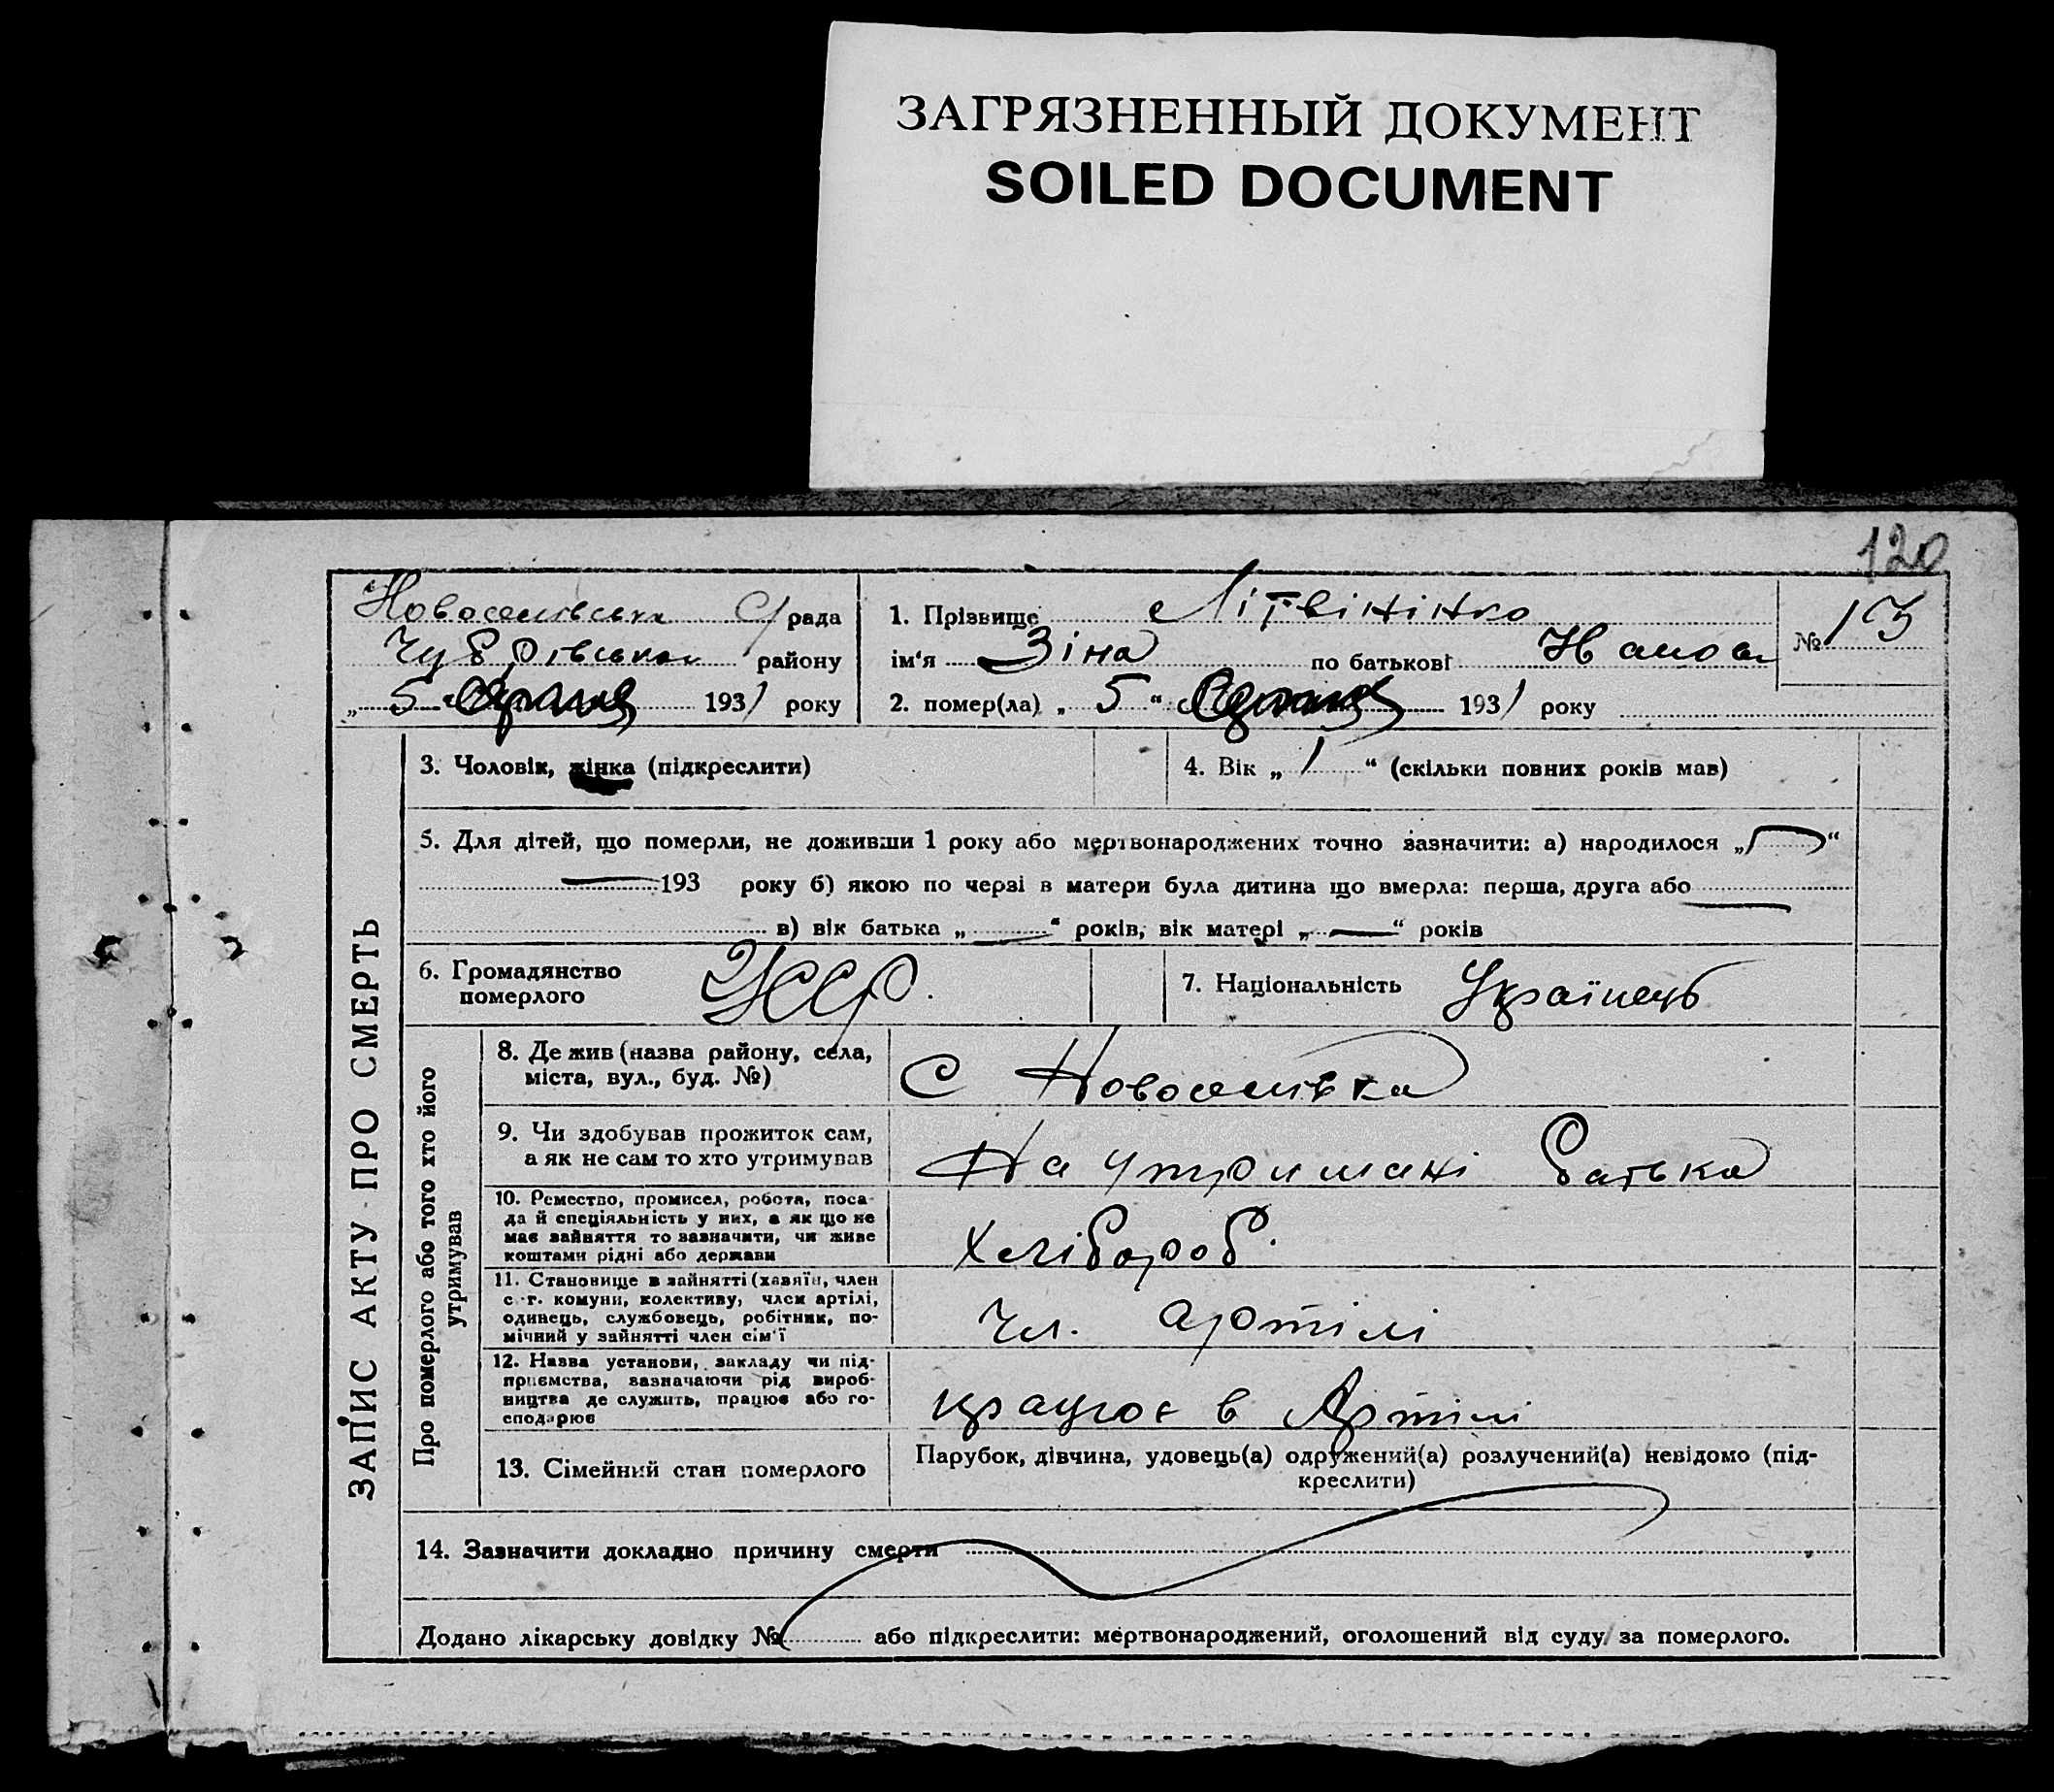 ЗАГРЯЗНЕННЫЙ ДОКУМЕНТ
SOILED DOCUMENT
120
Новоселівська С/рада
району
„ 5 193 1 року
1. Прізвище Літвінінко
ім'я Зіна по батькові
№ 13
2. помер(ла) „ 5 “ 1931 року
ЗАПИС АКТУ ПРО СМЕРТЬ
3. Чоловік, жінка (підкреслити)
4. Вік „ 1 “ (скільки повних років мав)
5. Для дітей, що померли, не доживши 1 року або мертвонароджених точно зазначити: а) народилося „ “
193 року б) якою по черзі в матери була дитина що вмерла: перша, друга або
в) вік батька „ “ років, вік матері „ “ років
6. Громадянство
померлого
УССР.
7. Національність Українець
Про померлого або того хто його
утримував
8. Де жив (назва району, села,
міста, вул., буд. №)
С Новоселівка
9. Чи здобував прожиток сам,
а як не сам то хто утримував
На утримані батька
10. Ремество, промисел, робота, поса-
да й спеціяльність у них, а як що не
має зайняття то зазначити, чи живе
коштами рідні або держави
Хлібороб.
11. Становище в зайнятті (хазяїн, член
с.-г. комуни, колективу, член артілі,
одинець, службовець, робітник, по-
мічний у зайнятті член сім'ї
Чл. артілі
12. Назва установи, закладу чи під-
приємства, зазначаючи рід вироб-
ництва де служить, працює або го-
сподарює
працює в Артілі
13. Сімейний стан померлого
Парубок, дівчина, удовець(а) одружений(а) розлучений(а) невідомо (під-
креслити)
14. Зазначити докладно причину смерти
Додано лікарську довідку № або підкреслити: мертвонароджений, оголошений від суду за померлого.